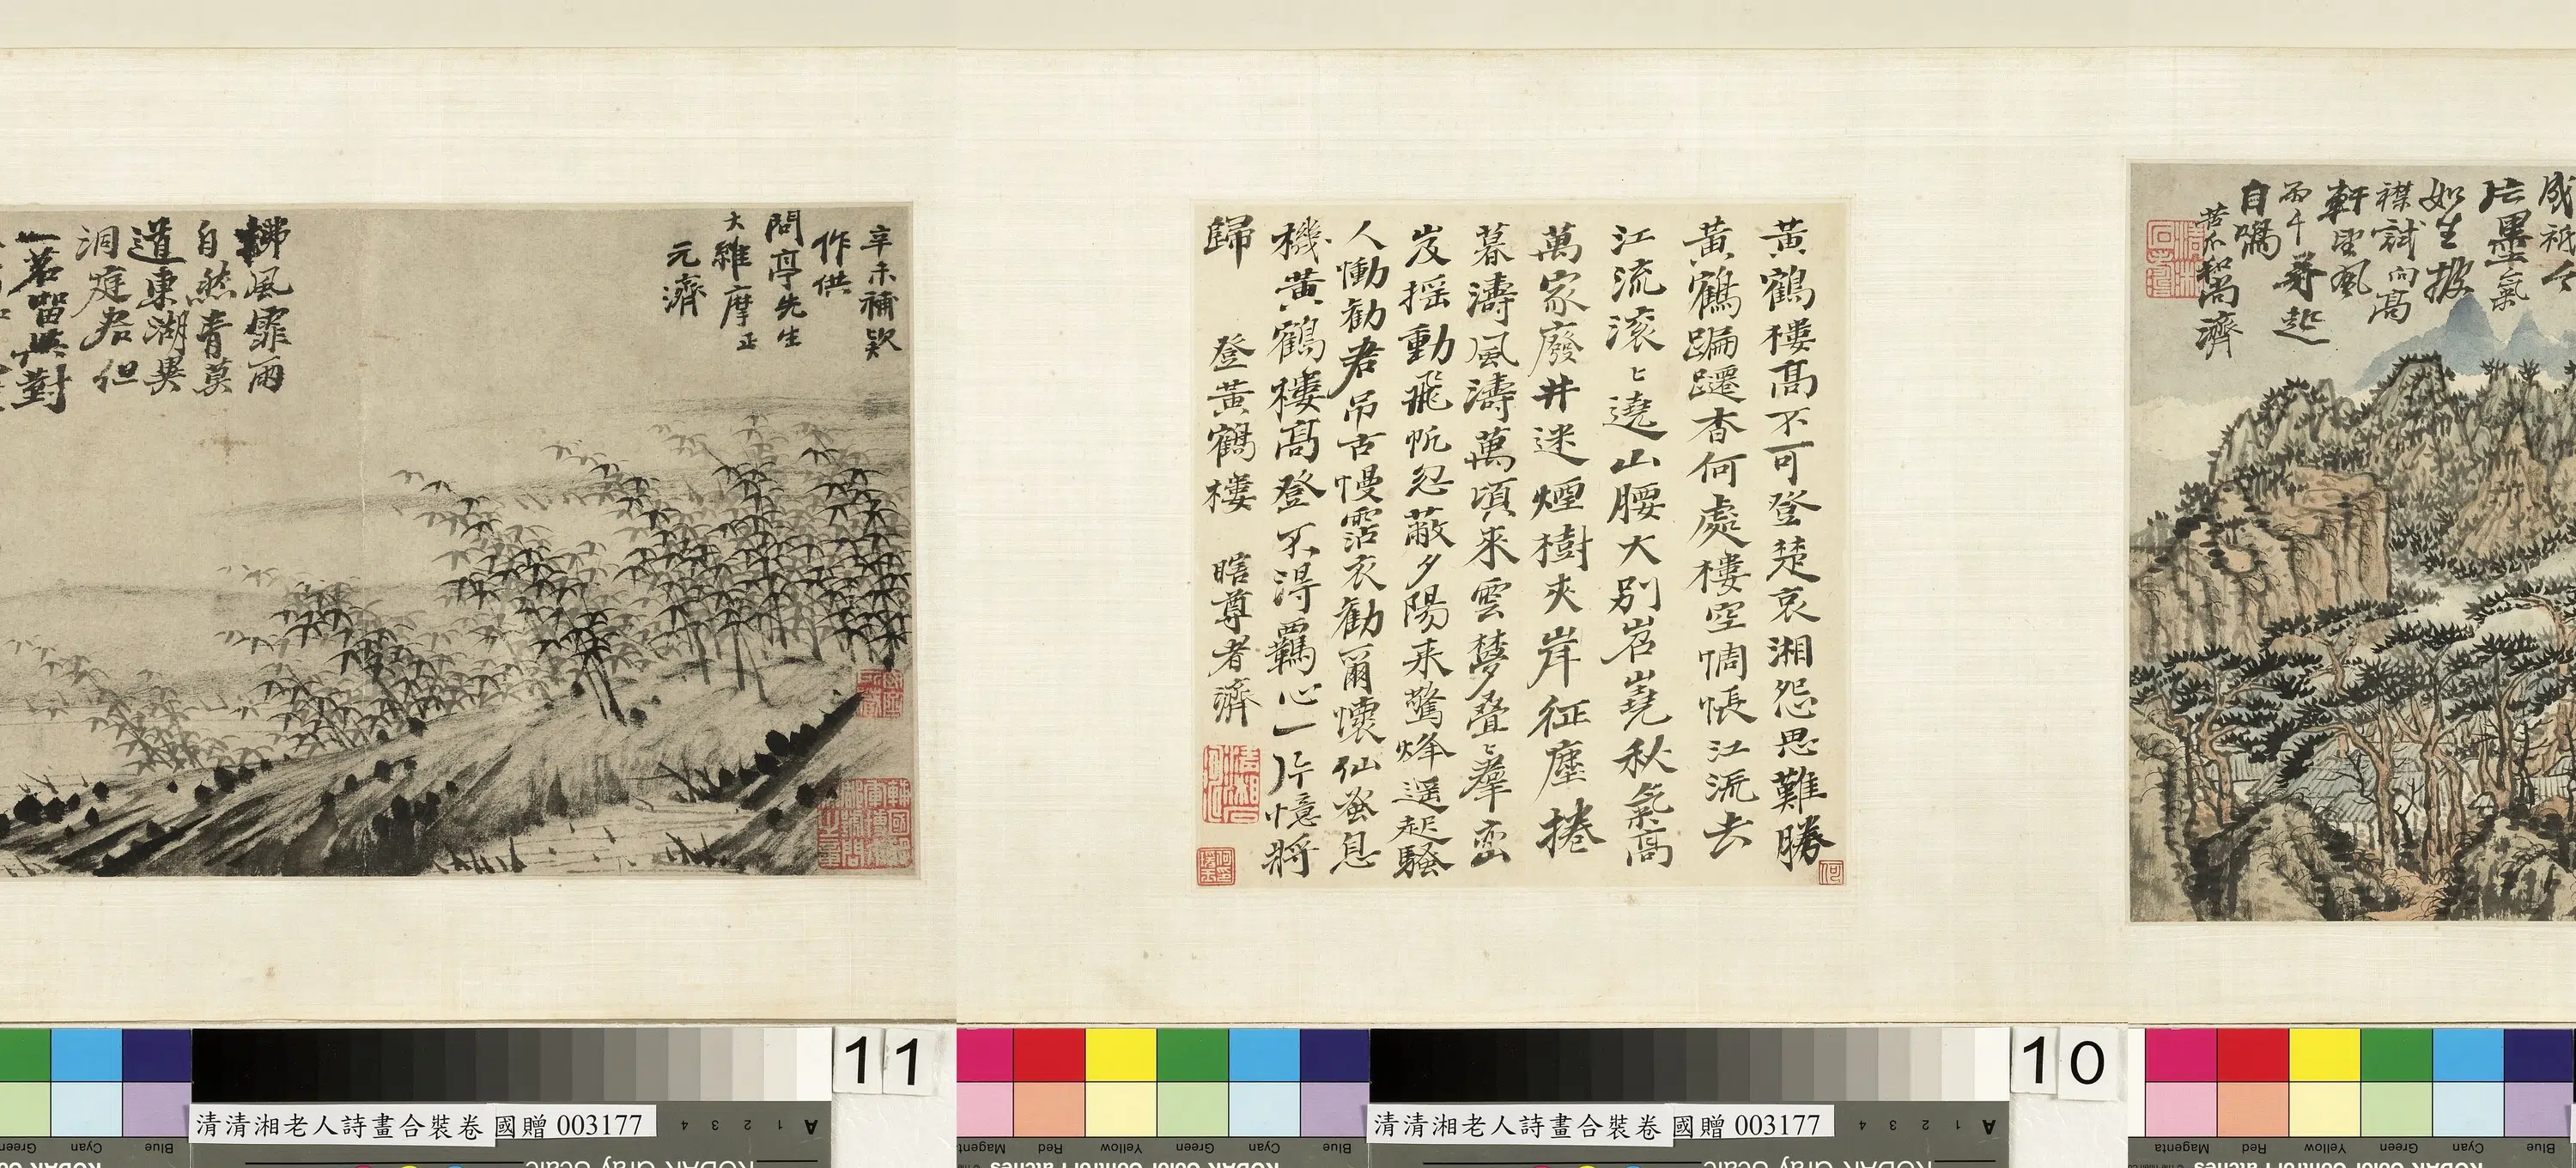 咸祇今
片墨氣
如生披
襟試向高
軒望風
雨千尋起
自鳴
苦瓜和尚濟
黃鶴樓高不可登楚哀湘怨思難勝
黃鶴蹁躚杳何處樓空惆悵江流去
江流滚〻遶山腰大別岧嶤秋氣高
萬家廢井迷煙樹夾岸征塵捲
暮濤風濤萬頃來雲夢疊〻羣巒
岌搖動飛帆忽蔽夕陽来驚烽遥起騷
人慟勸君吊古慢霑衣勸爾懷仙蚤息
機黃鶴樓高登不得羈心一片憶將
歸
登黃鶴樓 瞎尊者濟
何
辛未補欵
作供
問亭先生
大維摩正
元濟
拂風霏雨
自然青莫
道東湖異
洞庭君但
一茗留與對
11
10
清清湘老人詩畫合裝卷 國贈 003177
清清湘老人詩畫合裝卷 國贈 003177
A 1 2 3 4
A 1 2 3 4
Blue
Cyan
Green
Blue
Cyan
Green
Yellow
Red
Magenta
Blue
Cyan
Green
Yellow
Red
Magenta
KODAK Gray Scale
KODAK Color Control Patches
KODAK Gray Scale
KODAK Color Control Patches